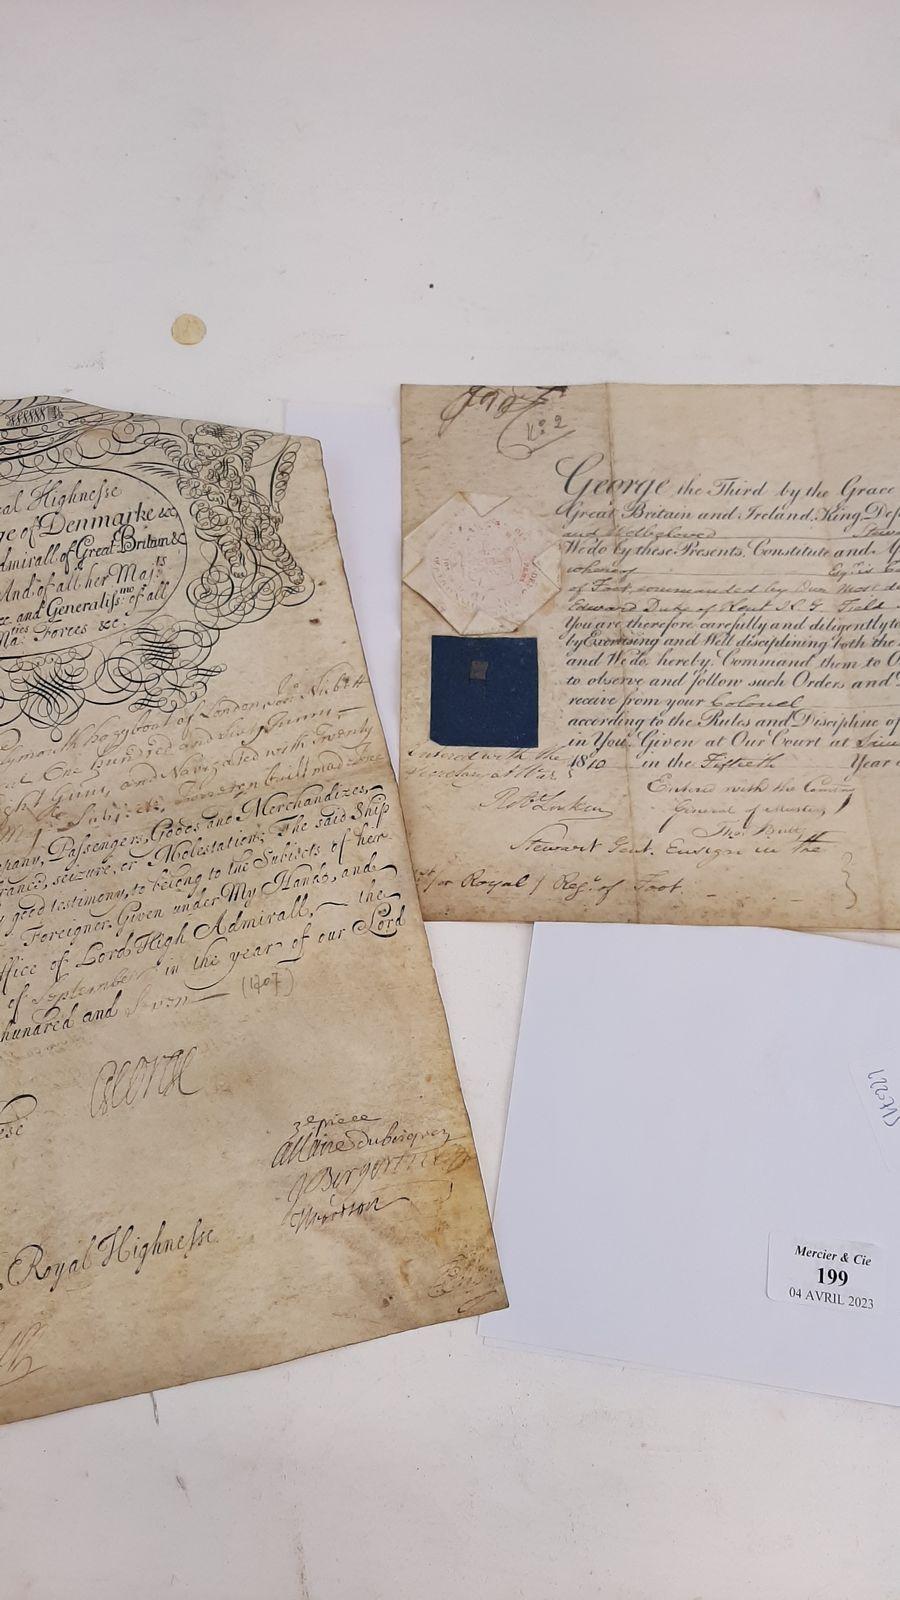 al Highnesse
ge of Denmarke &c
dmirall of Great-Britain &c
And of all her Maj.ts
ce and Generaliss.mo of all
Ma.ties Forces &c.
lymouth hagboat of London
One hundred and sixty Tunns
ght Gunns, and Navigated with Twenty
Subjects, Forreign built made Free
pany, Passengers, Goods and Merchandizes,
rance, seizure, or Molestation; The said Ship
y good testimony, to belong to the Subjects of her
Foreigner. Given under My Hand, and
ffice of Lord High Admirall, the
of September in the year of our Lord
hundred and Seven (1707)
George
3e piece
Allaire dubicquez
Royal Highnesse
No. 2
George the Third by the Grace
Great Britain and Ireland, King, Def
and Welbeloved Stewa
We do by these Presents, Constitute and
whereof Esqr. is
of Foot, commanded by Our Most d
Edward Duke of Kent K.G. Field
You are therefore carefully and diligently to
by Exercising and Well disciplining both the
and We do hereby Command them to O
to observe and follow such Orders and
receive from your Colonel
according to the Rules and Discipline of
in You. Given at Our Court at
1810 in the Fiftieth Year
Entered with the
Secretary at War
Entered with the Com
General of Musters
Stewart Gent. Ensign in the
1st/or Royal/Regt. of Foot.
Mercier & Cie
199
04 AVRIL 2023